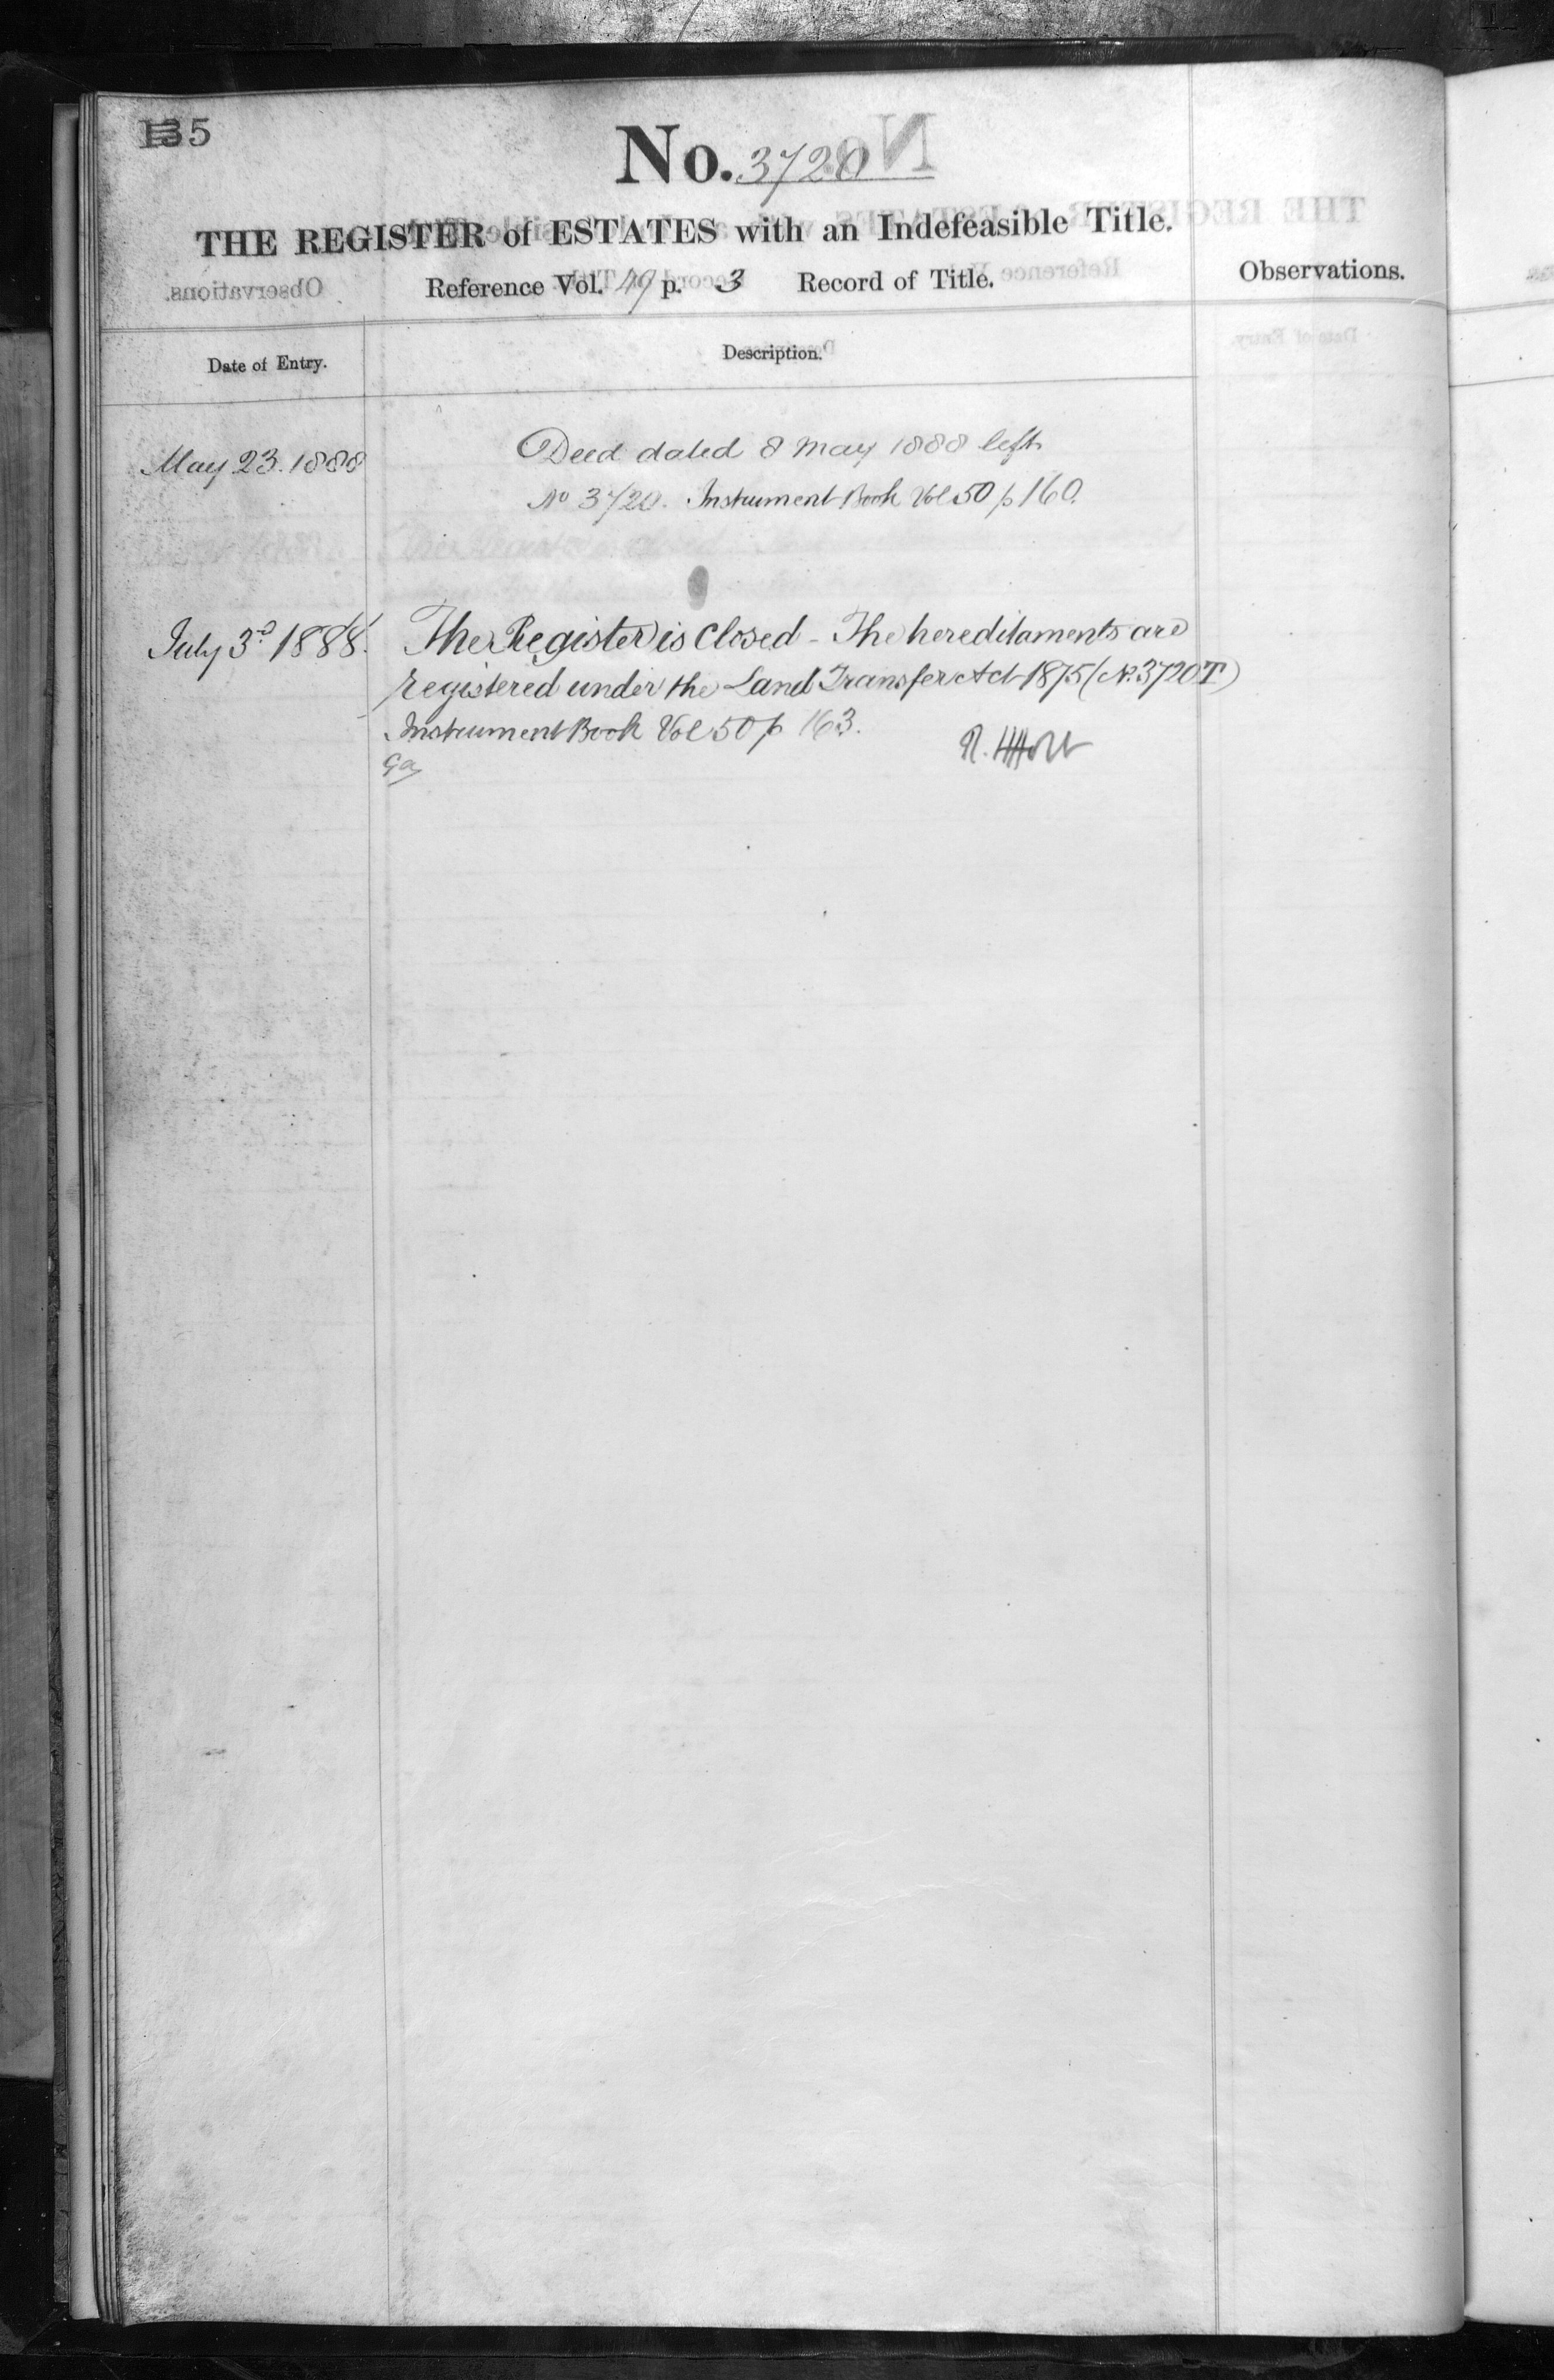 5
No. 3720
THE REGISTER of ESTATES with an Indefeasible Title.
Reference Vol. 49 p. 3 Record of Title.
Observations.
Date of Entry.
Description.
May 23. 1888
Deed dated 8 May 1888 left
No 3720. Instrument Book Vol 50 p 160.
July 3d 1888.
The Register is Closed - The hereditaments are
registered under the Land Transfer Act 1875 (No. 3720 T)
Instrument Book Vol 50 p 163.
R. H Holt